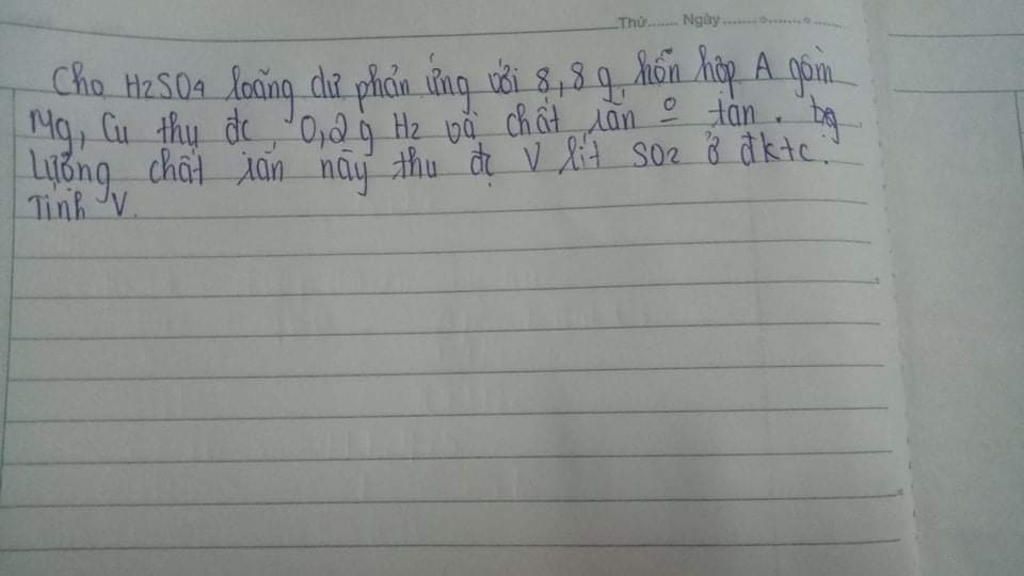 Thứ........ Ngày..................
Cho H2SO4 loãng dư phản ứng với 8,8 g hỗn hợp A gồm
Mg, Cu thu đc 0,2 g H2 và chất rắn ō tan. bg
Lượng chất rắn này thu đc V lít SO2 ở đktc.
Tính V.